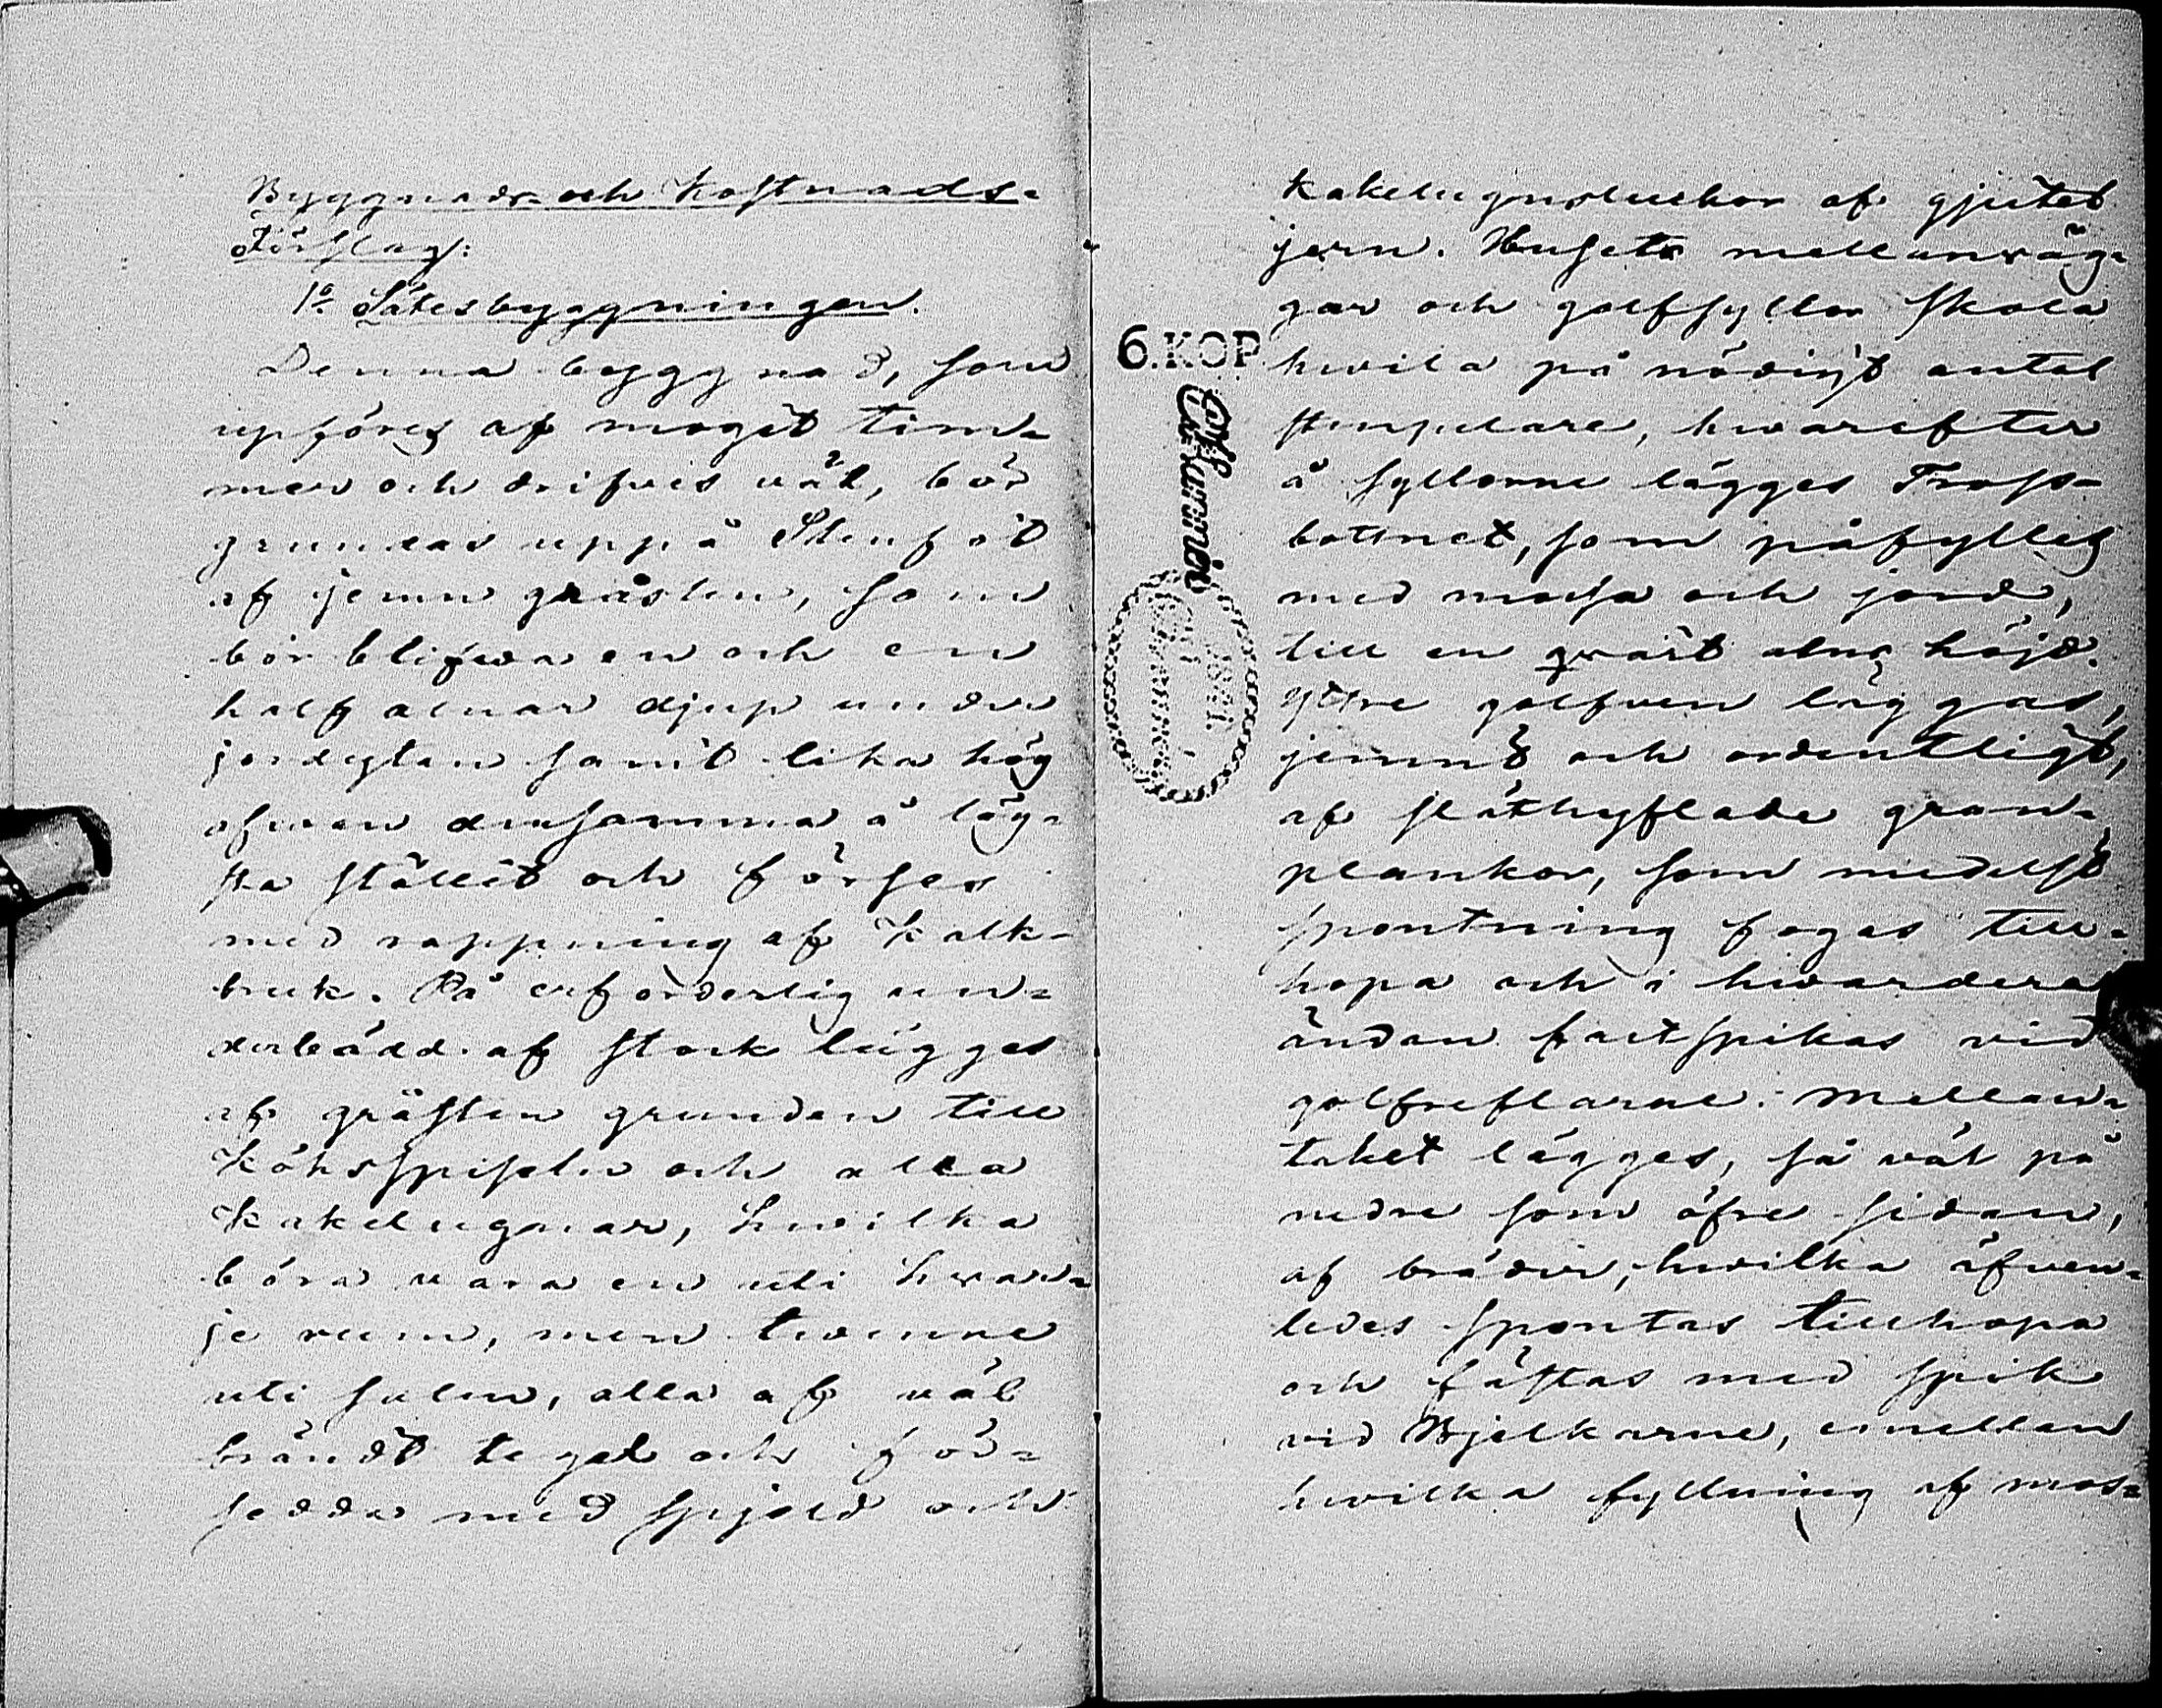 Byggnads- och Kostnads-
Förslag:
1:o Sätesbyggningen.
Denna byggnad, som
upföres af moget tim-
mer och drifves väl, bör
grundas uppå Stenfot
af jemn gråsten, som
bör blifwa en och en
half alnar djup under
jordytan samt lika hög
ofwan densamma å läg-
sta stället och förses
med rappning af Kalk-
bruk. På erforderlig un-
derbädd af stock lägges
af gråsten grunden till
Köksspiseln och alla
Kakelugnar, hwilka
böra vara en uti hwar-
je rum, men twenne
uti salen, alla af väl
brändt tegel och för-
sedda med spjeld och
Kakelugnsluckor af gjutet
jern. Husets mellanväg-
gar och golfsyllor skola
hwila på nödigt antal
stenpelare, hwarefter
å syllorne lägges Tross-
bottnet, som påfylles
med mossa och jord,
till en qwart alns höjd.
Yttre golfven läggas,
jemnt och ordentligt,
af släthyflade gran-
plankor, som medelst
spontning fogas till-
hopa och i hwardera
ändan fastspikas vid
golfreflarne. Mellan-
taket lägges, så väl på
nedre som öfre sidan,
af bräder, hwilka äfven-
ledes spontas tillhopa
och fästas med spik
vid Bjelkarne, emellan
hwilka fyllning af mos-
6.KOP